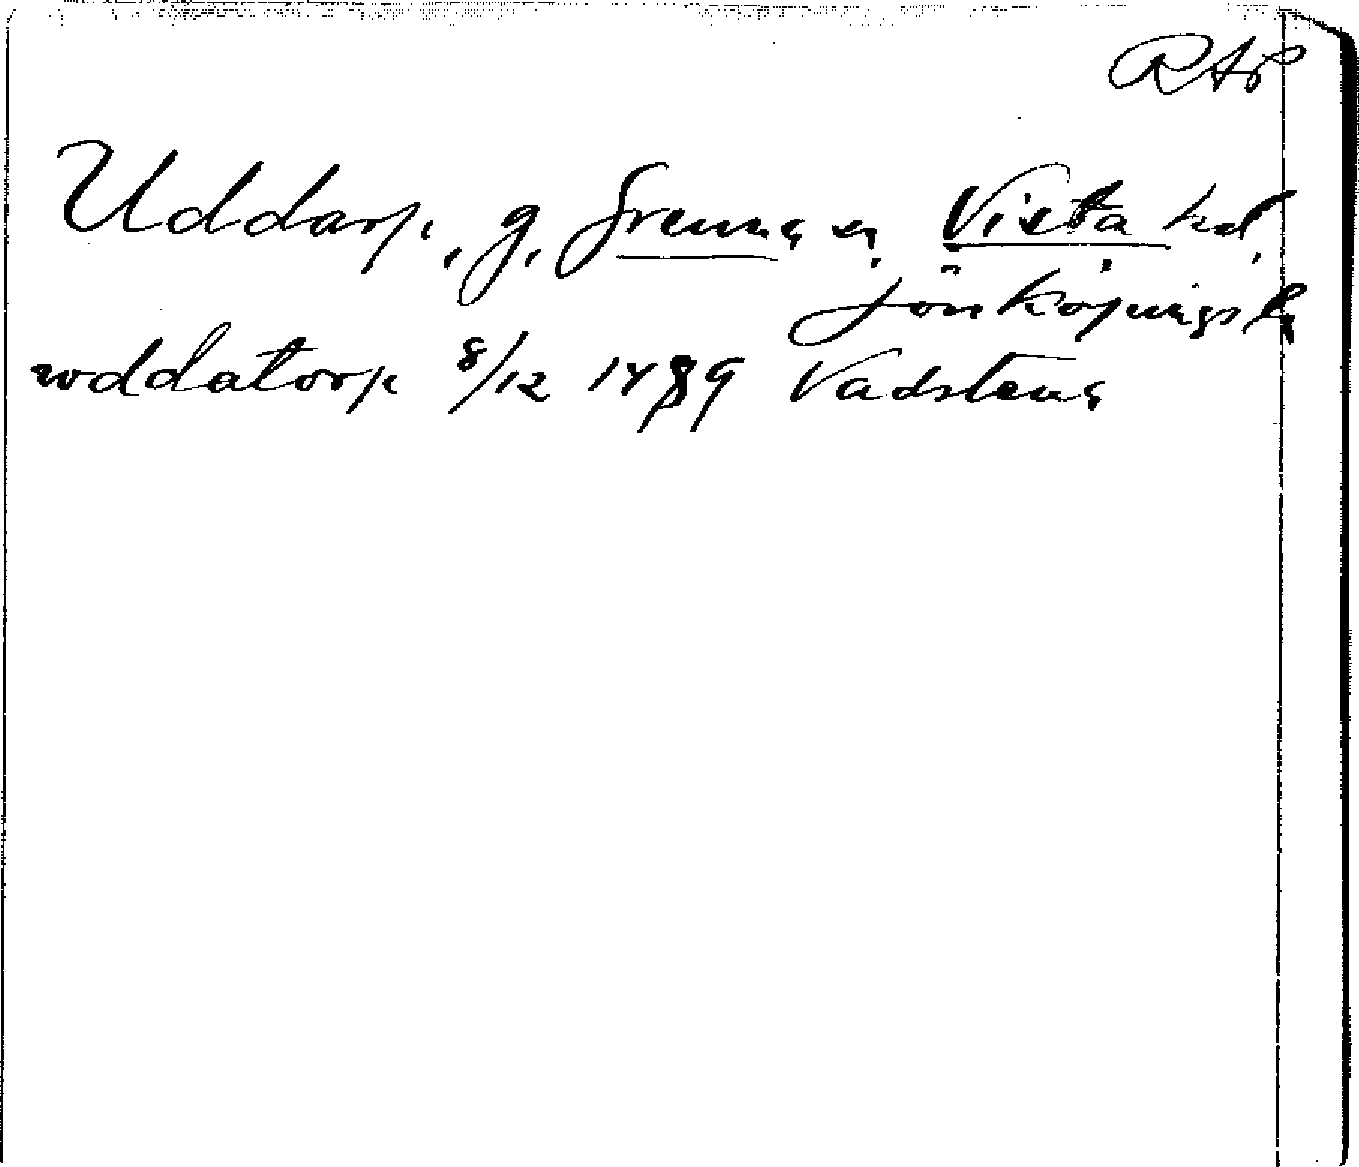 RAP
Uddarp, g, Grenna sn, Vista hd,
Jönköpings l
wddatorp 8/12 1489 Vadstena